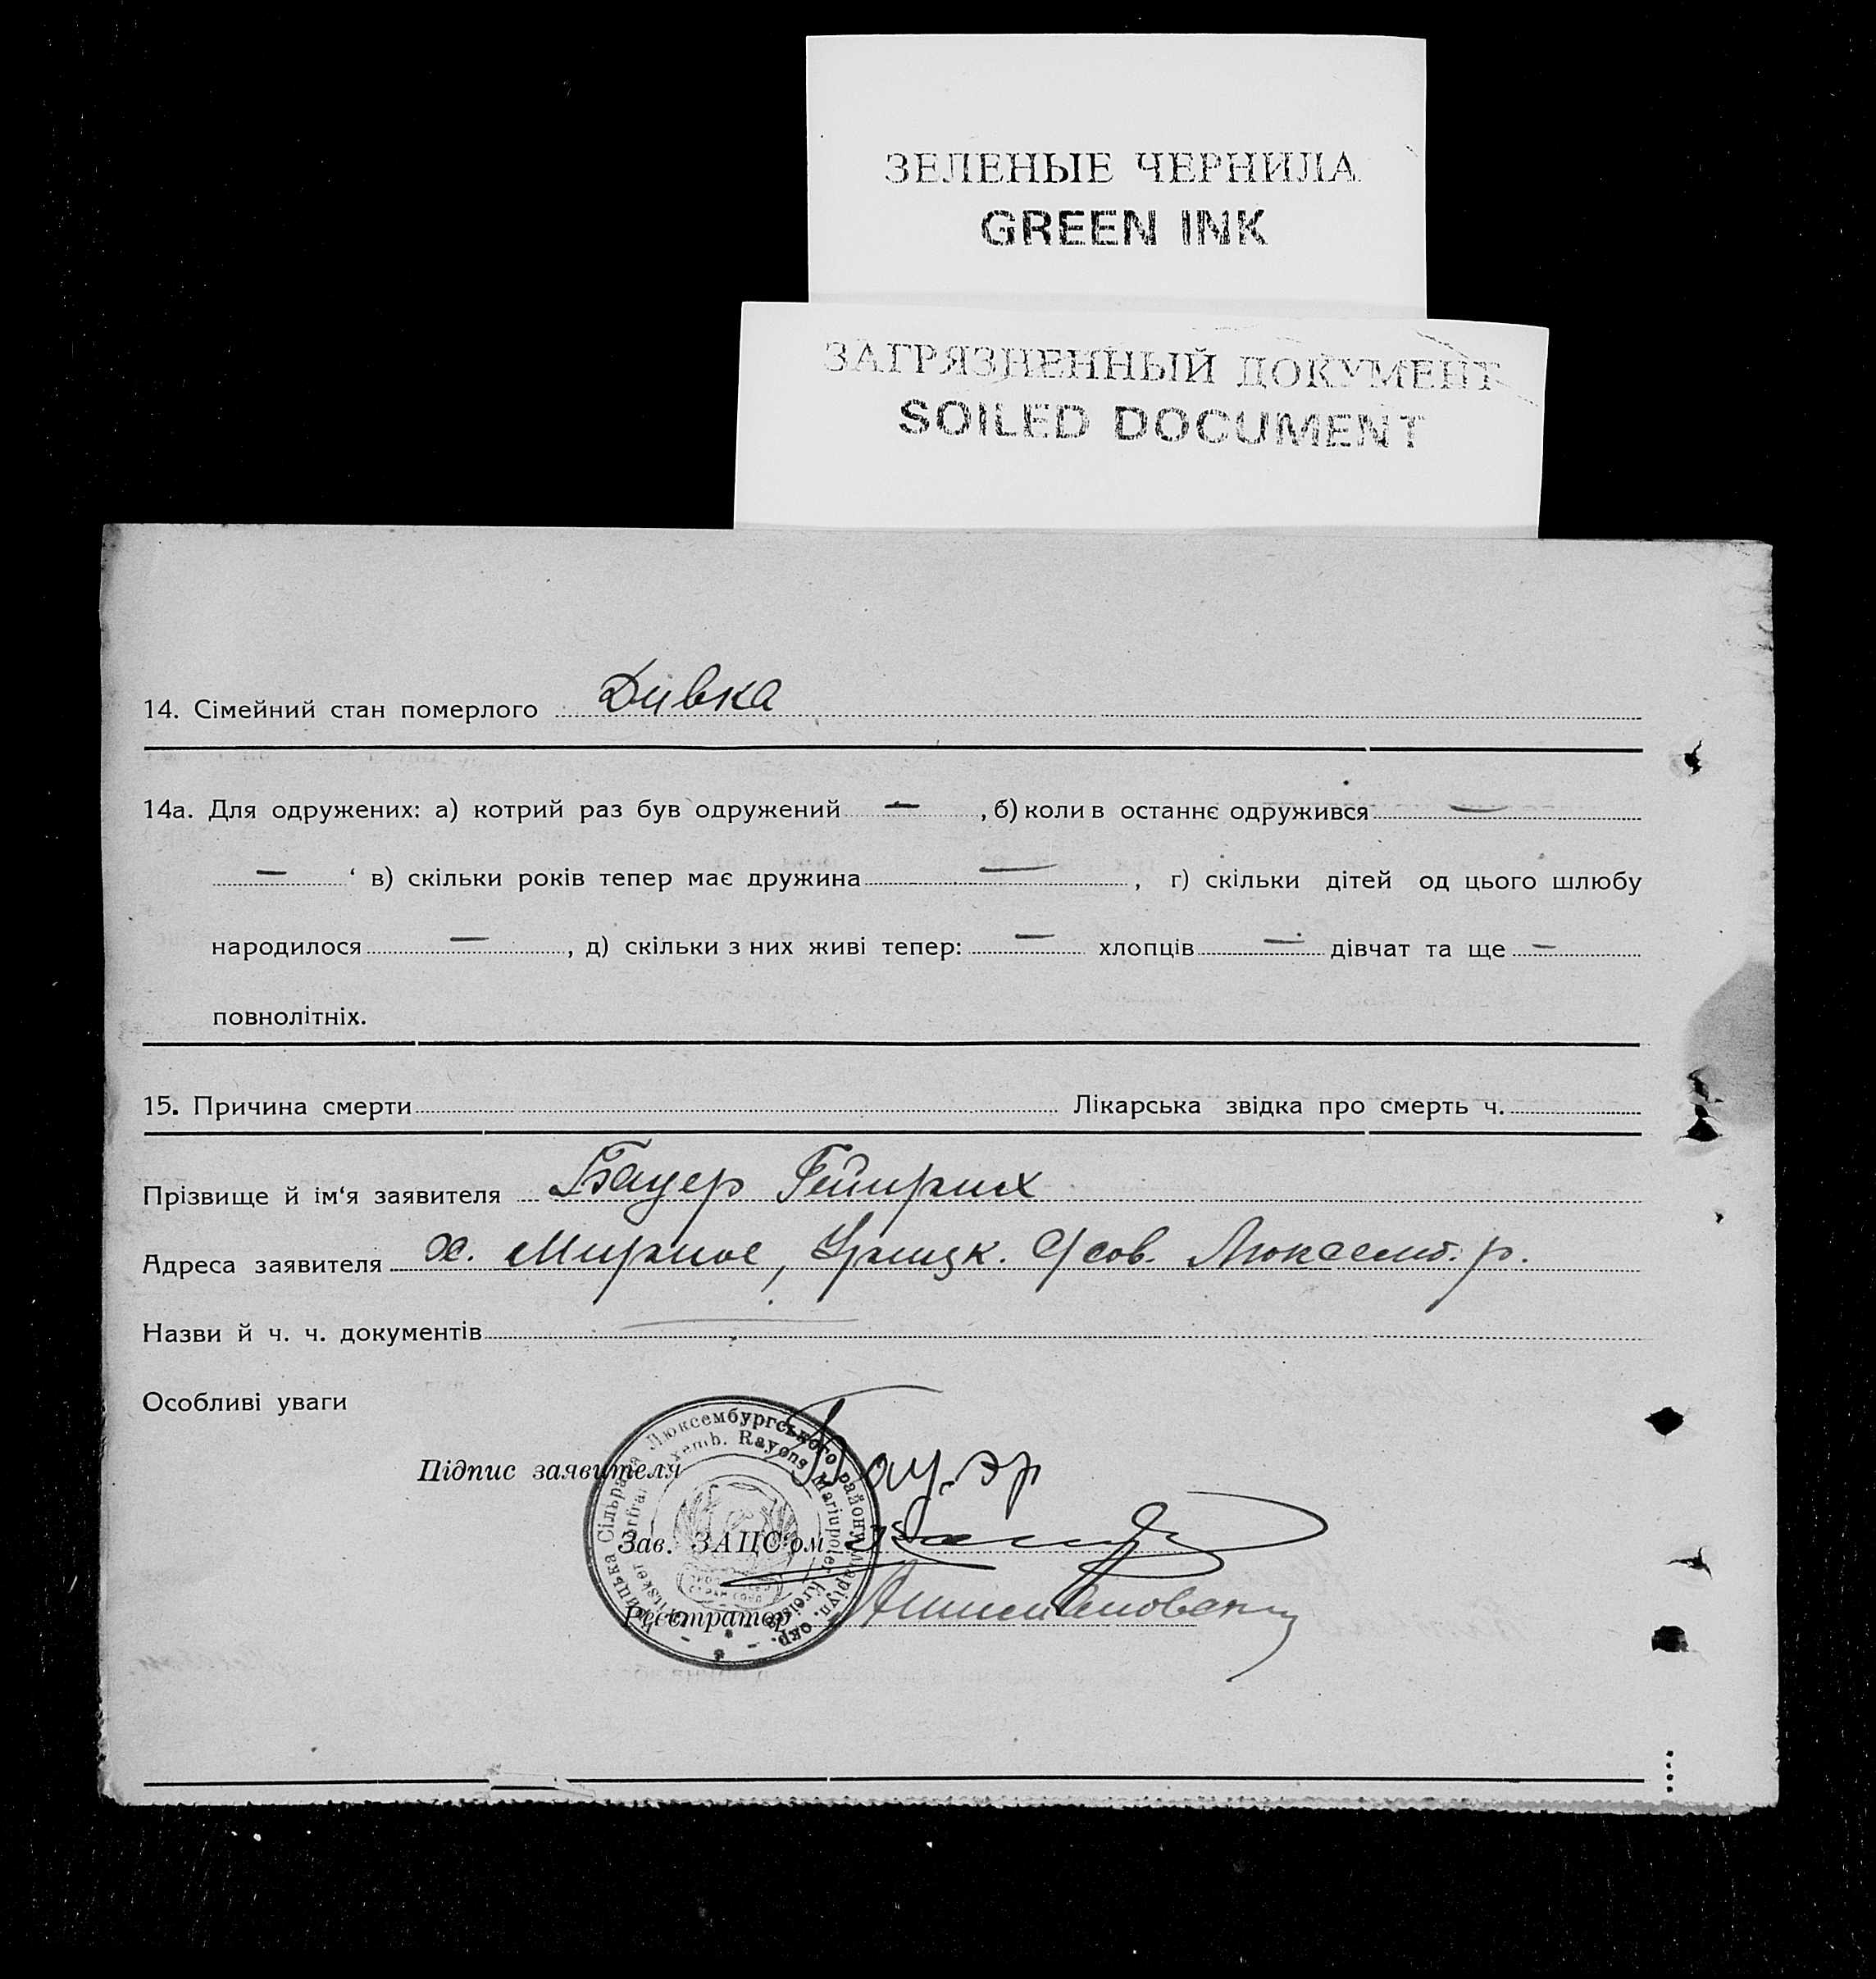 ЗЕЛЕНЫЕ ЧЕРНИЛА
GREEN INK
ЗАГРЯЗНЕННЫЙ ДОКУМЕНТ
SOILED DOCUMENT
14. Сімейний стан померлого Дивка
14а. Для одружених: а) котрий раз був одружений — , б) коли в останнє одружився —
— ‘ в) скільки років тепер має дружина — , г) скільки дітей од цього шлюбу
народилося — , д) скільки з них живі тепер: — хлопців — дівчат та ще —
повнолітніх.
15. Причина смерти Лікарська звідка про смерть ч.
Прізвище й ім‘я заявителя Бауер Гейнрих
Адреса заявителя х. Мирное, Урицк. с/сов. Люксемб. р.
Назви й ч. ч. документів —
Особливі уваги
Підпис заявителя Бауэр
Зав. ЗАЦС‘ом
Реєстратор
Сільрада Люксембургського району Маріуп. окр.
Rayons Mariupoler Kreises